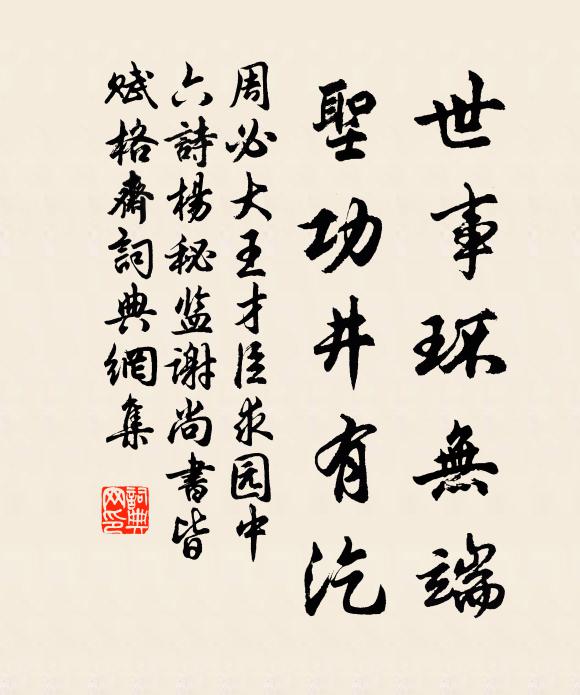 世事环無端
聖功井有汔
周必大王才臣求园中
六詩楊秘监謝尚書皆
赋格齋詞典網集
詞典网印